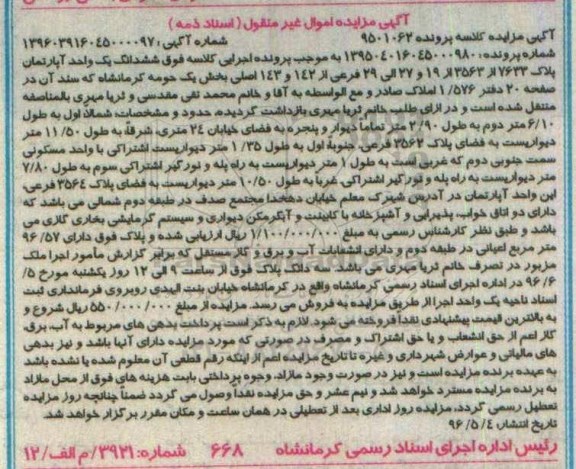 آگهی مزایده اموال غیر منقول (اسناد ذمه)
آگهی مزایده کلاسه پرونده ۹۵۰۱۰۶۲ شماره آگهی: ۱۳۹۶۰۳۹۱۶۰۴۵۰۰۰۰۹۷
شماره پرونده: ۱۳۹۵۰۴۰۱۶۰۴۵۰۰۰۹۸۰ به موجب پرونده اجرایی کلاسه فوق ششدانگ یک واحد آپارتمان
پلاک ۷۶۳۳ از ۳۵۶۳ از ۱۹ و ۲۷ الی ۲۹ فرعی از ۱۴۲ و ۱۴۳ اصلی بخش یک حومه کرمانشاه که سند آن در
صفحه ۲۰ دفتر ۱/۵۷۶ املاک صادر و مع الواسطه به آقا و خانم محمد تقی مقدسی و ثریا مهری بالمناصفه
منتقل شده است و در ازای طلب خانم ثریا مهری بازداشت گردیده، حدود و مشخصات: شمالا اول به طول
۶/۱۰ متر دوم به طول ۲/۹۰ متر تماما دیوار و پنجره به فضای خیابان ۲۴ متری، شرقا به طول ۱۱/۵۰ متر
دیواریست به فضای پلاک ۳۵۶۲ فرعی، جنوبا اول به طول ۱/۳۵ متر دیواریست اشتراکی با واحد مسکونی
سمت جنوبی دوم که غربی است به طول ۱ متر دیواریست به راه پله و نورگیر اشتراکی سوم به طول ۷/۸۰
متر دیواریست به راه پله و نورگیر اشتراکی، غربا به طول ۱۰/۵۰ متر دیواریست به فضای پلاک ۳۵۶۴ فرعی،
این واحد آپارتمان در آدرس شهرک معلم خیابان دهخدا مجتمع صدف در طبقه دوم شمالی می باشد که
دارای دو اتاق خواب، پذیرایی و آشپزخانه با کابینت و آبگرمکن دیواری و سیستم گرمایشی بخاری گازی می
باشد و طبق نظر کارشناس رسمی به مبلغ ۱/۱۰۰/۰۰۰/۰۰۰ ریال ارزیابی شده و پلاک فوق دارای ۹۶/۵۷
متر مربع اعیانی در طبقه دوم و دارای انشعابات آب و برق و گاز مستقل که برابر گزارش مأمور اجرا ملک
مزبور در تصرف خانم ثریا مهری می باشد. سه دانگ پلاک فوق از ساعت ۹ الی ۱۲ روز یکشنبه مورخ ۵/
۹۶/۶ در اداره اجرای اسناد رسمی کرمانشاه واقع در کرمانشاه خیابان بنت الهدی روبروی فرمانداری ثبت
اسناد ناحیه یک واحد اجرا از طریق مزایده به فروش می رسد. مزایده از مبلغ ۵۵۰/۰۰۰/۰۰۰ ریال شروع و
به بالاترین قیمت پیشنهادی نقدا فروخته می شود. لازم به ذکر است پرداخت بدهی های مربوط به آب، برق،
گاز اعم از حق انشعاب و یا حق اشتراک و مصرف در صورتی که مورد مزایده دارای آنها باشد و نیز بدهی
های مالیاتی و عوارض شهرداری و غیره تا تاریخ مزایده اعم از اینکه رقم قطعی آن معلوم شده یا نشده باشد
به عهده برنده مزایده است و نیز در صورت وجود مازاد، وجوه پرداختی بابت هزینه های فوق از محل مازاد
به برنده مزایده مسترد خواهد شد و نیم عشر و حق مزایده نقدا وصول می گردد ضمنا چنانچه روز مزایده
تعطیل رسمی گردد، مزایده روز اداری بعد از تعطیلی در همان ساعت و مکان مقرر برگزار خواهد شد.
تاریخ انتشار: ۹۶/۵/۴
رئیس اداره اجرای اسناد رسمی کرمانشاه ۶۶۸ شماره: ۳۹۲۱/م الف/۱۲